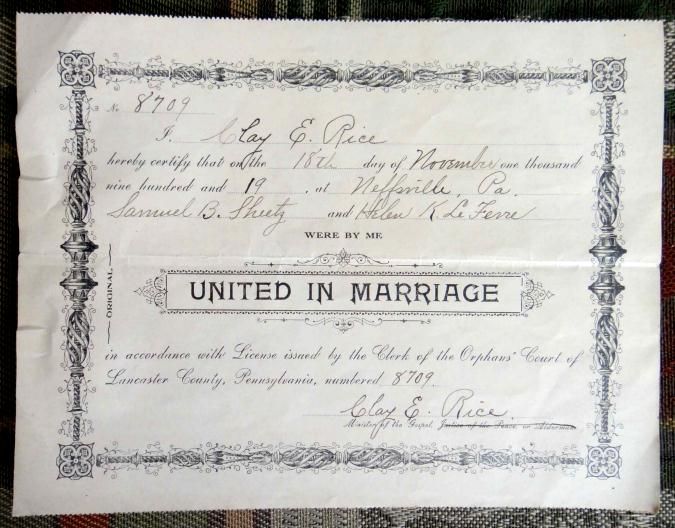 No. 8709
I, Clay E. Rice
hereby certify that on the 18th day of November one thousand
nine hundred and 19, at Neffsville, Pa.
Samuel B. Sheetz and Helen K. Le Fevre
WERE BY ME
ORIGINAL
UNITED IN MARRIAGE
in accordance with License issued by the Clerk of the Orphans' Court of
Lancaster County, Pennsylvania, numbered 8709.
Clay E. Rice.
Minister of the Gospel, Justice of the Peace, or Alderman